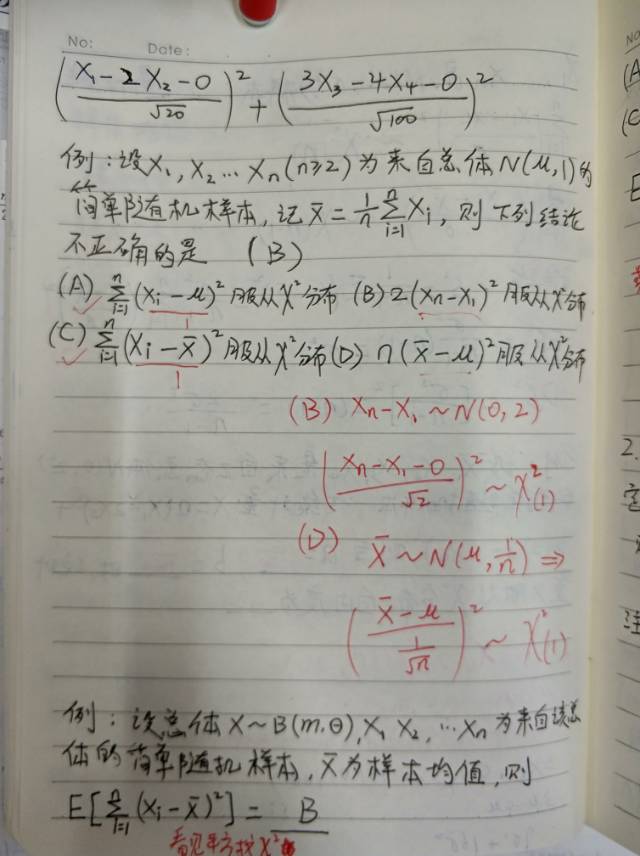 No: Date:
((X₁-2X₂-0)/√20)² + ((3X₃-4X₄-0)/√100)²
例:设X₁,X₂…Xn(n≥2)为来自总体N(μ,1)的
简单随机样本,记X̄=1/n ∑ᵢ₌₁ⁿ Xᵢ,则下列结论
不正确的是 (B)
(A) ∑ᵢ₌₁ⁿ(Xᵢ-μ)²服从χ²分布 (B) 2(Xn-X₁)²服从χ²分布
1
(C) ∑ᵢ₌₁ⁿ(Xᵢ-X̄)²服从χ²分布 (D) n(X̄-μ)²服从χ²分布
1
(B) Xn-X₁~N(0,2)
((Xn-X₁-0)/√2)² ~ χ²(1)
(D) X̄~N(μ,1/n) ⇒
((X̄-μ)/(1/√n))² ~ χ²(1)
例:设总体X~B(m.θ),X₁ X₂,…Xn为来自该总
体的简单随机样本,X̄为样本均值,则
E[∑ᵢ₌₁ⁿ(Xᵢ-X̄)²]= B
看见平方找χ²